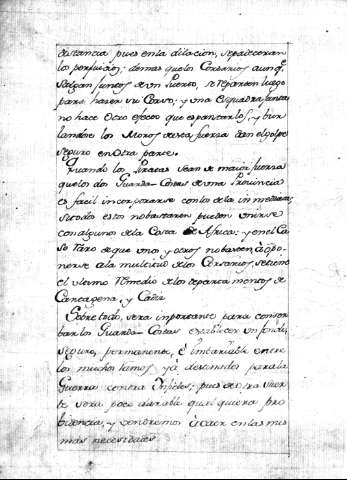 distancia pues en la dilacion, se padecerian
los perjuicios; demas que los Corsarios aunqe
salgan juntos de un Puerto, se reparten luego
para haser su Corso; y una esquadra junta
no hace otro efecto que espantarlos, y bur
landose los Moros de esta fuerza dan el golpe
seguro en otra parte.
Quando los Piratas sean de maior fuerza
que los dos Guarda Costas de una Provincia
es facil incorporarse con los de la inmediata;
si todos estos no bastaren pueden unirse
con algunos de la Costa de Africa; y en el Ca
so raro de que unos y otros no basten à opo
nerse a la multitud de los Corsarios, se tiene
el ultimo remedio de los departamentos de
Cartagena, y Cadiz
Sobre todo, sera importante para conser
bar los Guarda Costas establecer un fondo,
seguro, permanente, è imbariable entre
los muchos ramos, yà destinados para la
Guerra contra Infieles; pues de otra suer
te sera poco durable qualquiera pro
bidencia, y vendremos à caer en las mis
mas necesidades